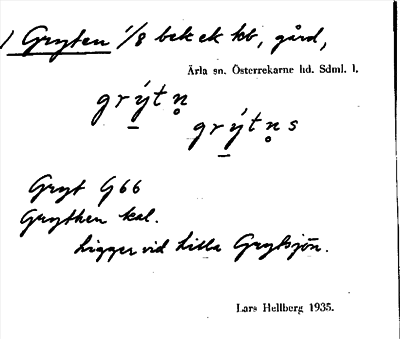 1 Gryten 1/8 bek ek kb, gård,
Ärla sn. Österrekarne hd. Sdml. l.
grýtn̥
grýtn̥s
Gryt G 66
Grythen kal.
Ligger vid Lilla Grytsjön.
Lars Hellberg 1935.